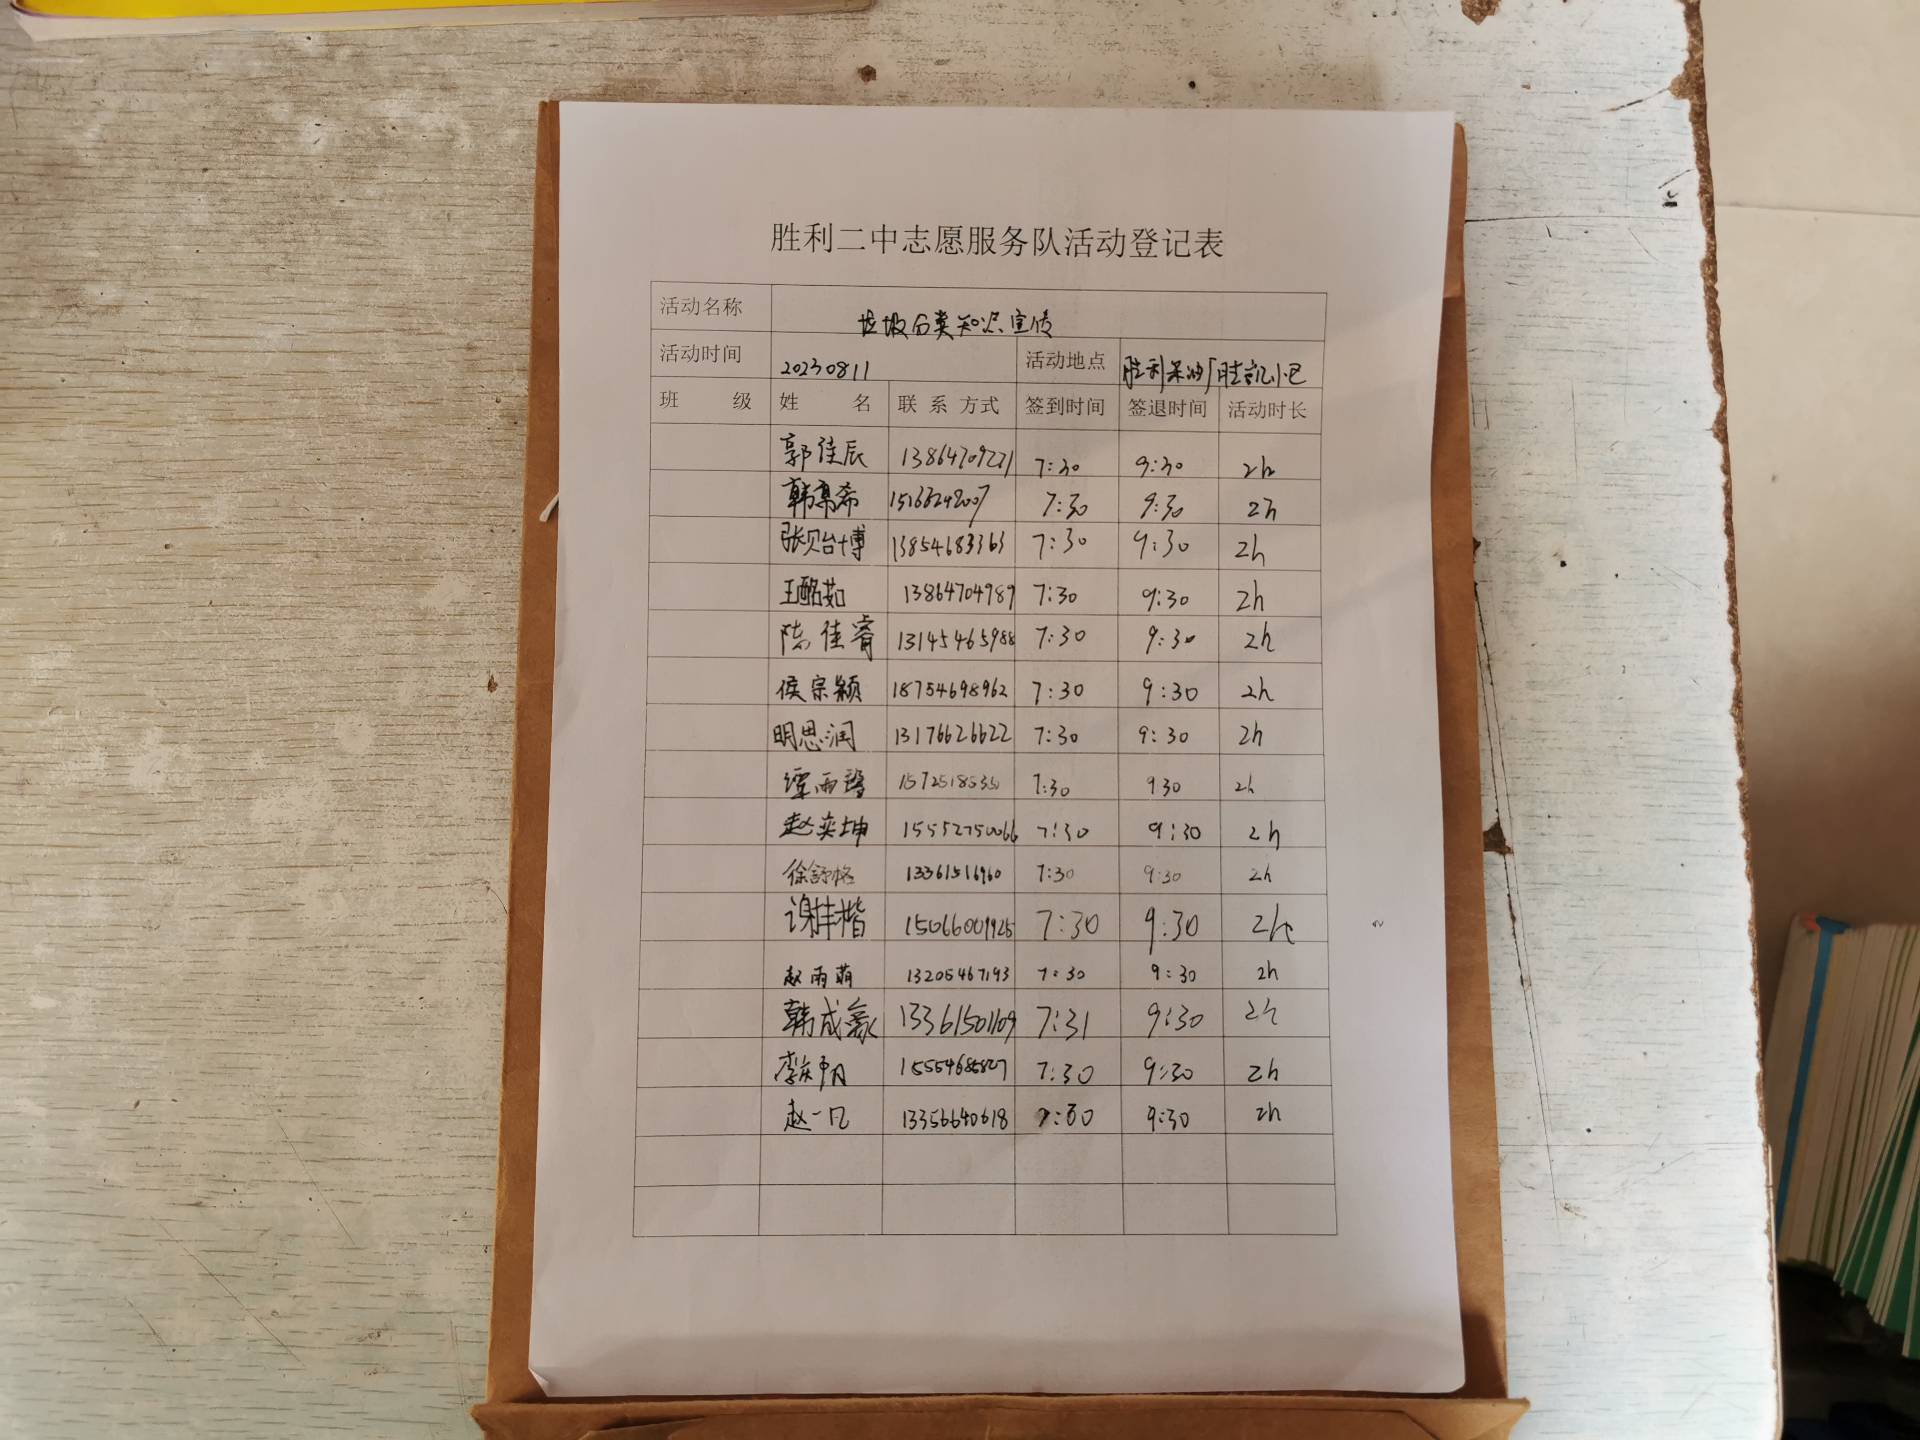 胜利二中志愿服务队活动登记表
活动名称 垃圾分类知识宣传
活动时间 20230811 活动地点 胜利采油厂胜凯小区
班 级 姓 名 联 系 方式 签到时间 签退时间 活动时长
郭佳辰 13864709221 7:30 9:30 2h
韩易希 7:30 9:30 2h
张贻博 13854683363 7:30 9:30 2h
王酩茹 13864704989 7:30 9:30 2h
陈佳睿 13145465988 7:30 9:30 2h
侯宗颖 18754698962 7:30 9:30 2h
明思润 13176626622 7:30 9:30 2h
谭雨 7:30 930 2h
赵奕坤 15552750066 7:30 9:30 2h
徐舒格 13361516960 7:30 9:30 2h
谢丰楷 15066009925 7:30 9:30 2h
赵雨萌 13205467193 7:30 9:30 2h
韩成豪 13361501109 7:31 9:30 2h
李庆帅 15554685827 7:30 9:30 2h
赵一凡 13356640618 9:30 2h